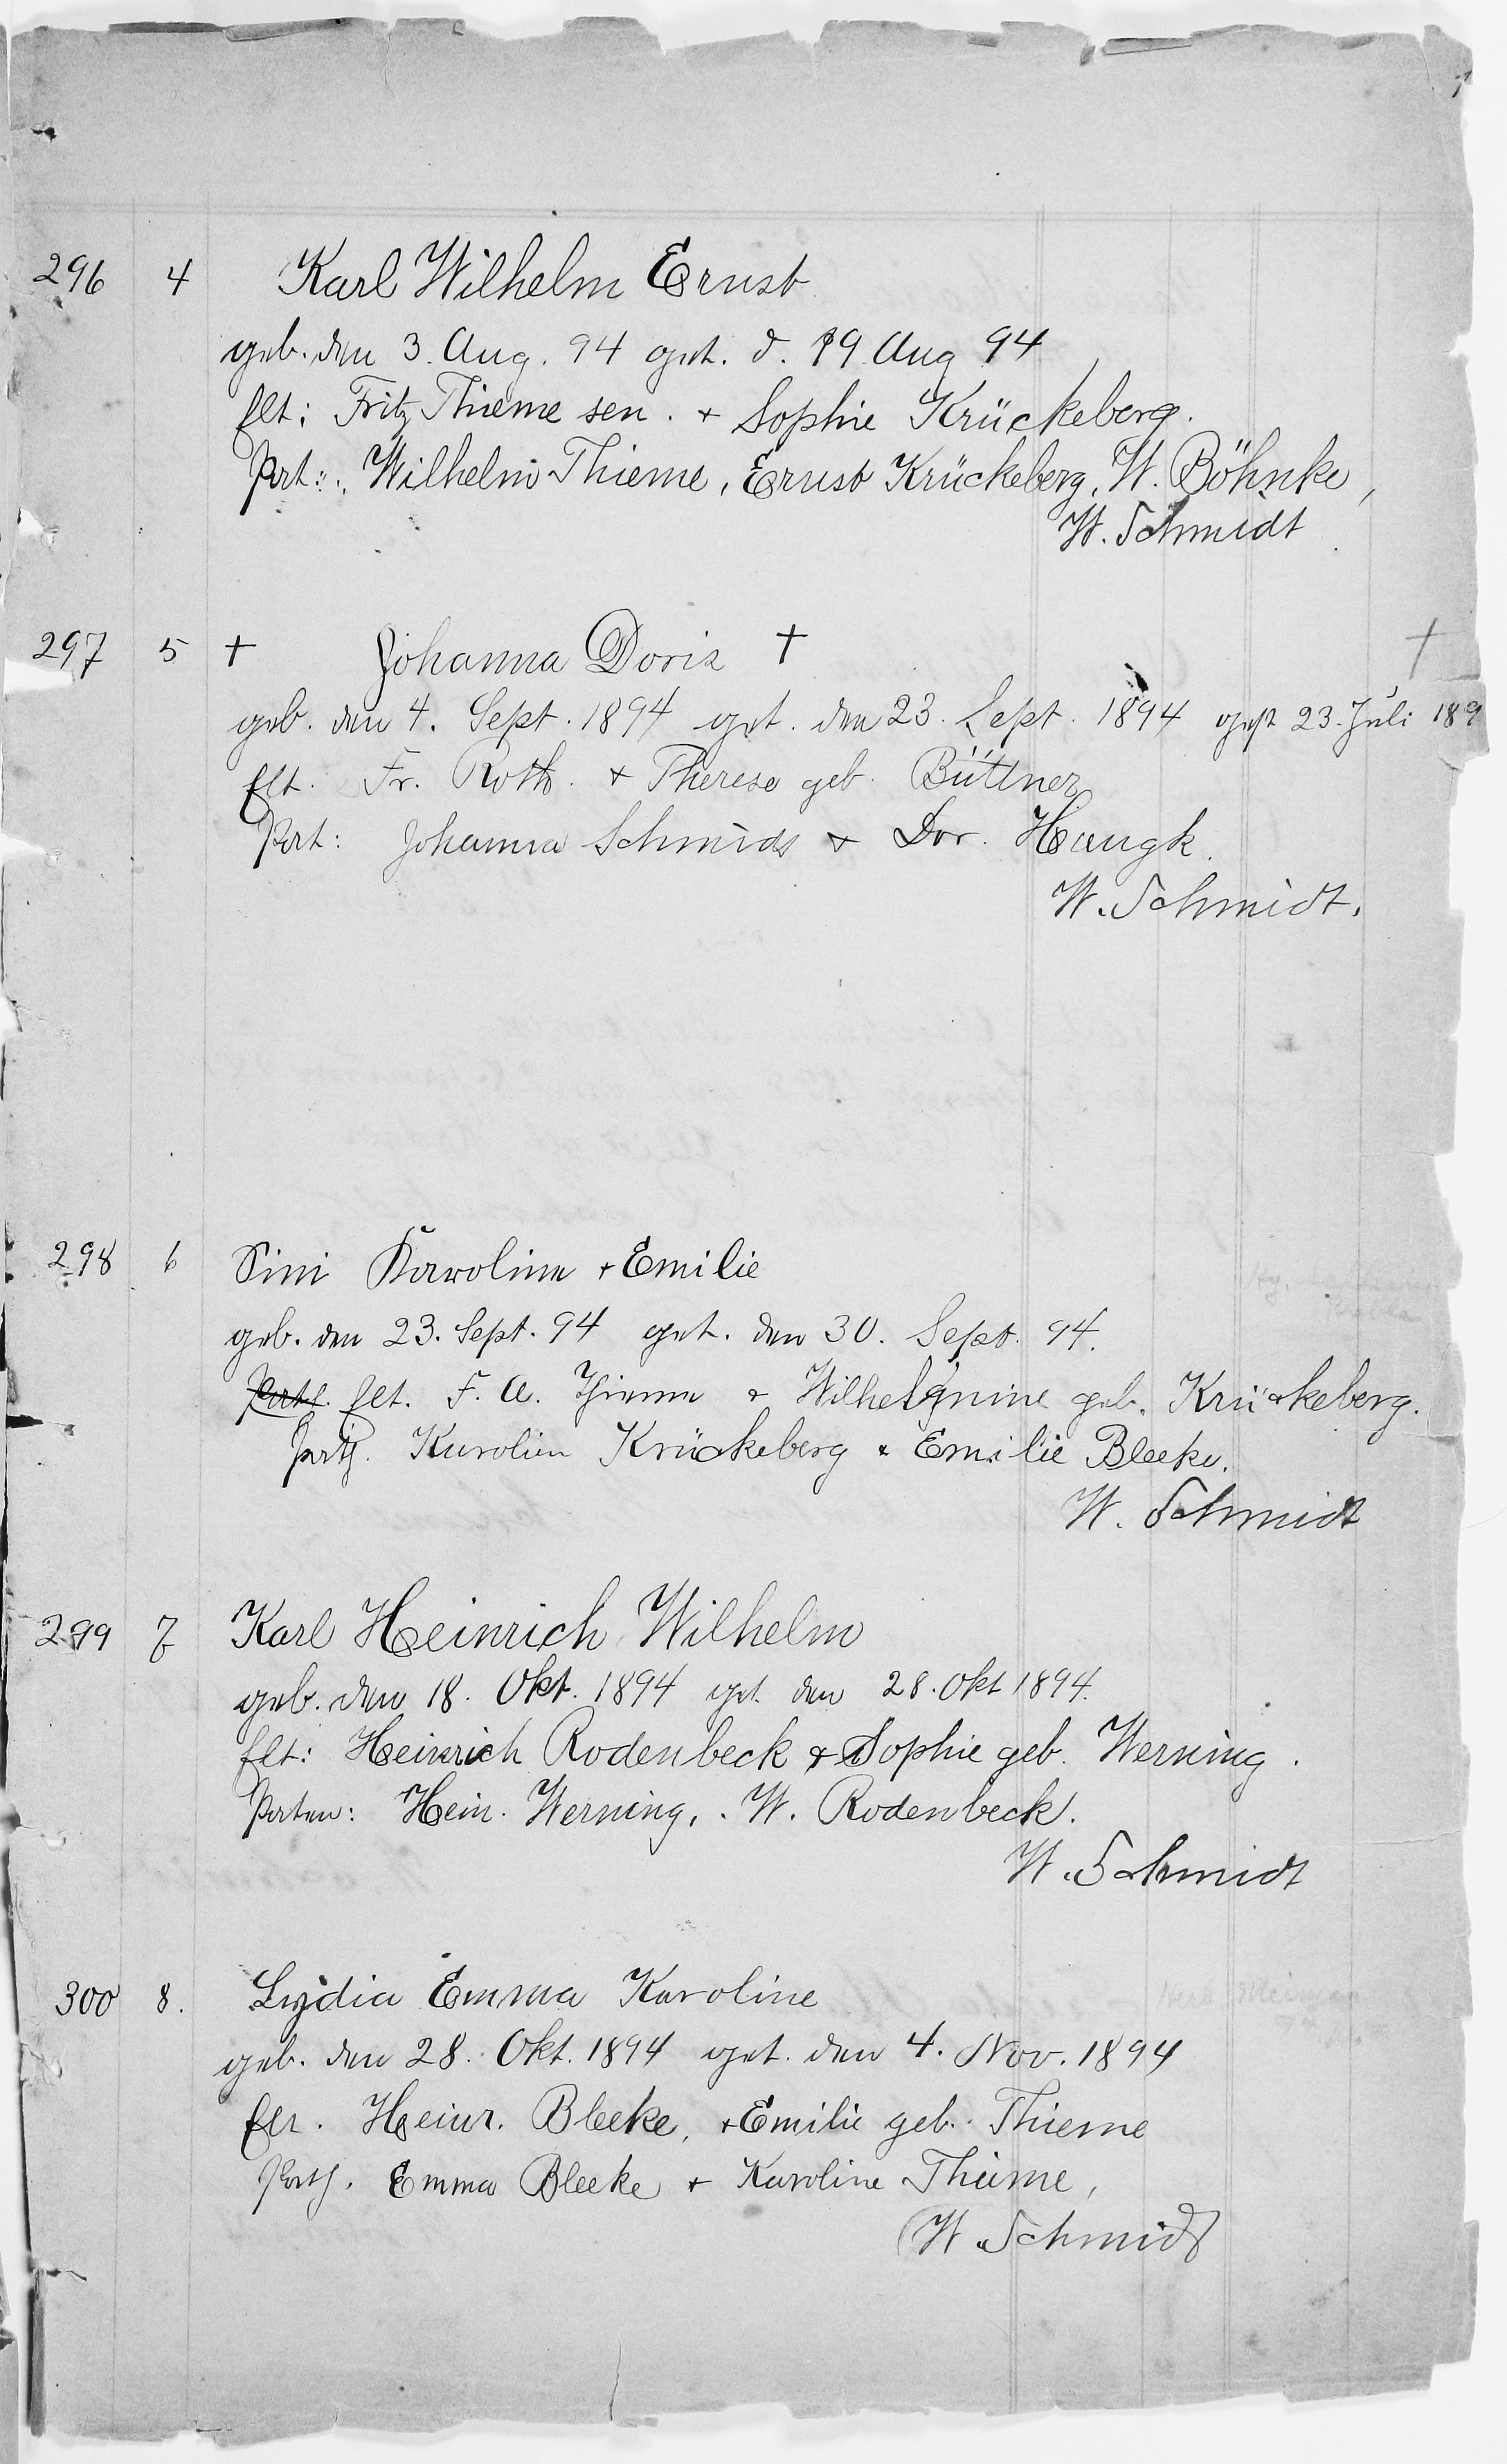 296 4 Karl Wilhelm Ernst
geb. den 3. Aug. 94 get. d. 19 Aug 94
Elt: Fritz Thieme sen. + Sophie Krückeberg.
Pat: Wilhelm Thieme, Ernst Krückeberg, W. Böhnke,
W. Schmidt
297 5 † Johanna Doris † †
geb. den 4. Sept. 1894 get. den 23. Sept. 1894 gest 23. Juli 189
Elt. Fr. Roth. + Therese geb. Büttner
Pat: Johanna Schmidt + Dor. Haugk.
W. Schmidt.
298 6 Sini Karoline + Emilie
geb. den 23. Sept. 94 get. den 30. Sept. 94.
Elt. F. A. Thieme + Wilhelmine geb. Krückeberg.
Path. Karolin Krückeberg + Emilie Bleeke.
W. Schmidt
299 7 Karl Heinrich Wilhelm
geb. den 18. Okt. 1894 get. den 28. Okt 1894.
Elt: Heinrich Rodenbeck + Sophie geb. Werning.
Paten: Hein. Werning, W. Rodenbeck.
W. Schmidt
300 8. Lydia Emma Karoline
geb. den 28. Okt. 1894 get. den 4. Nov. 1894
Elt. Heinr. Bleeke, + Emilie geb. Thieme
Path. Emma Bleeke + Karoline Thieme,
W. Schmidt